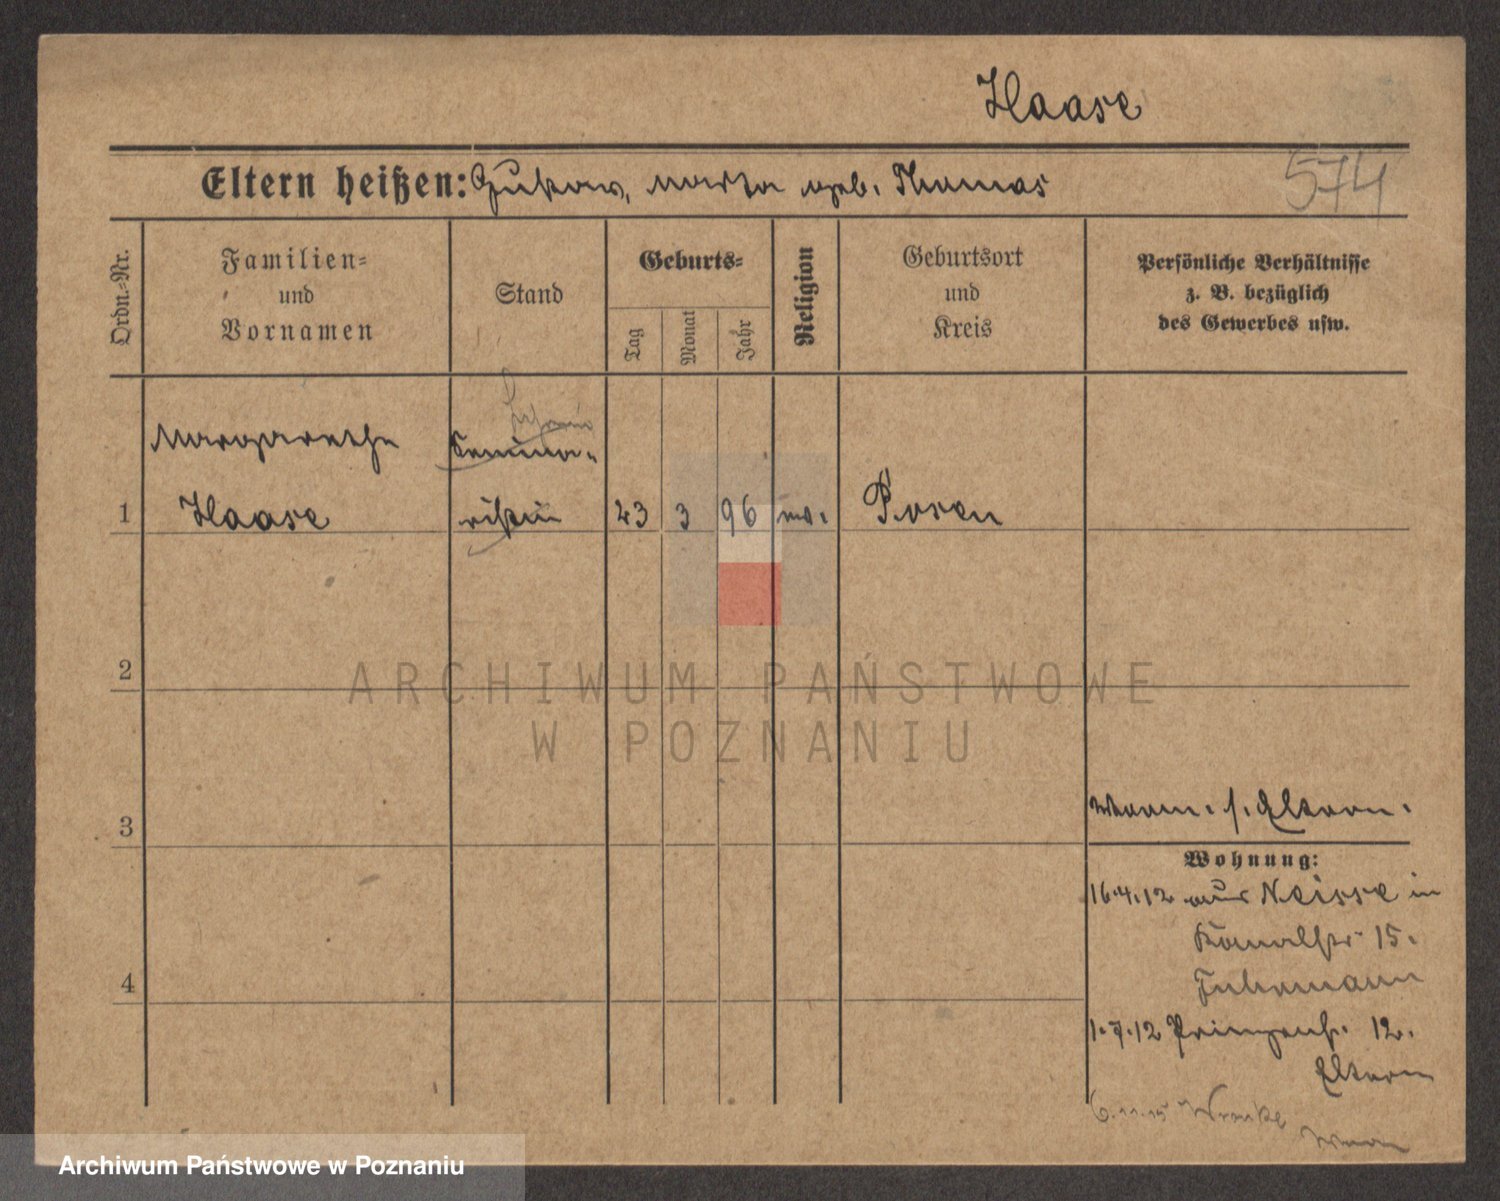 Haase
574
Eltern heißen: Gustav, Marta geb. Thomas
Ordn.-Nr.
Familien-
und
Vornamen
Stand
Geburts-
Tag
Monat
Jahr
Religion
Geburtsort
und
Kreis
Persönliche Verhältnisse
z. B. bezüglich
des Gewerbes usw.
Margarethe
Semina-
1 Haase ristin 23 3 96 ev. Posen
2
ARCHIWUM PAŃSTWOWE
W POZNANIU
3
s. Eltern.
Wohnung:
16.4.12 aus Neisse in
Kanalstr 15.
4
1.7.12 Prinzenstr. 12.
Eltern
6.11.15
Archiwum Państwowe w Poznaniu